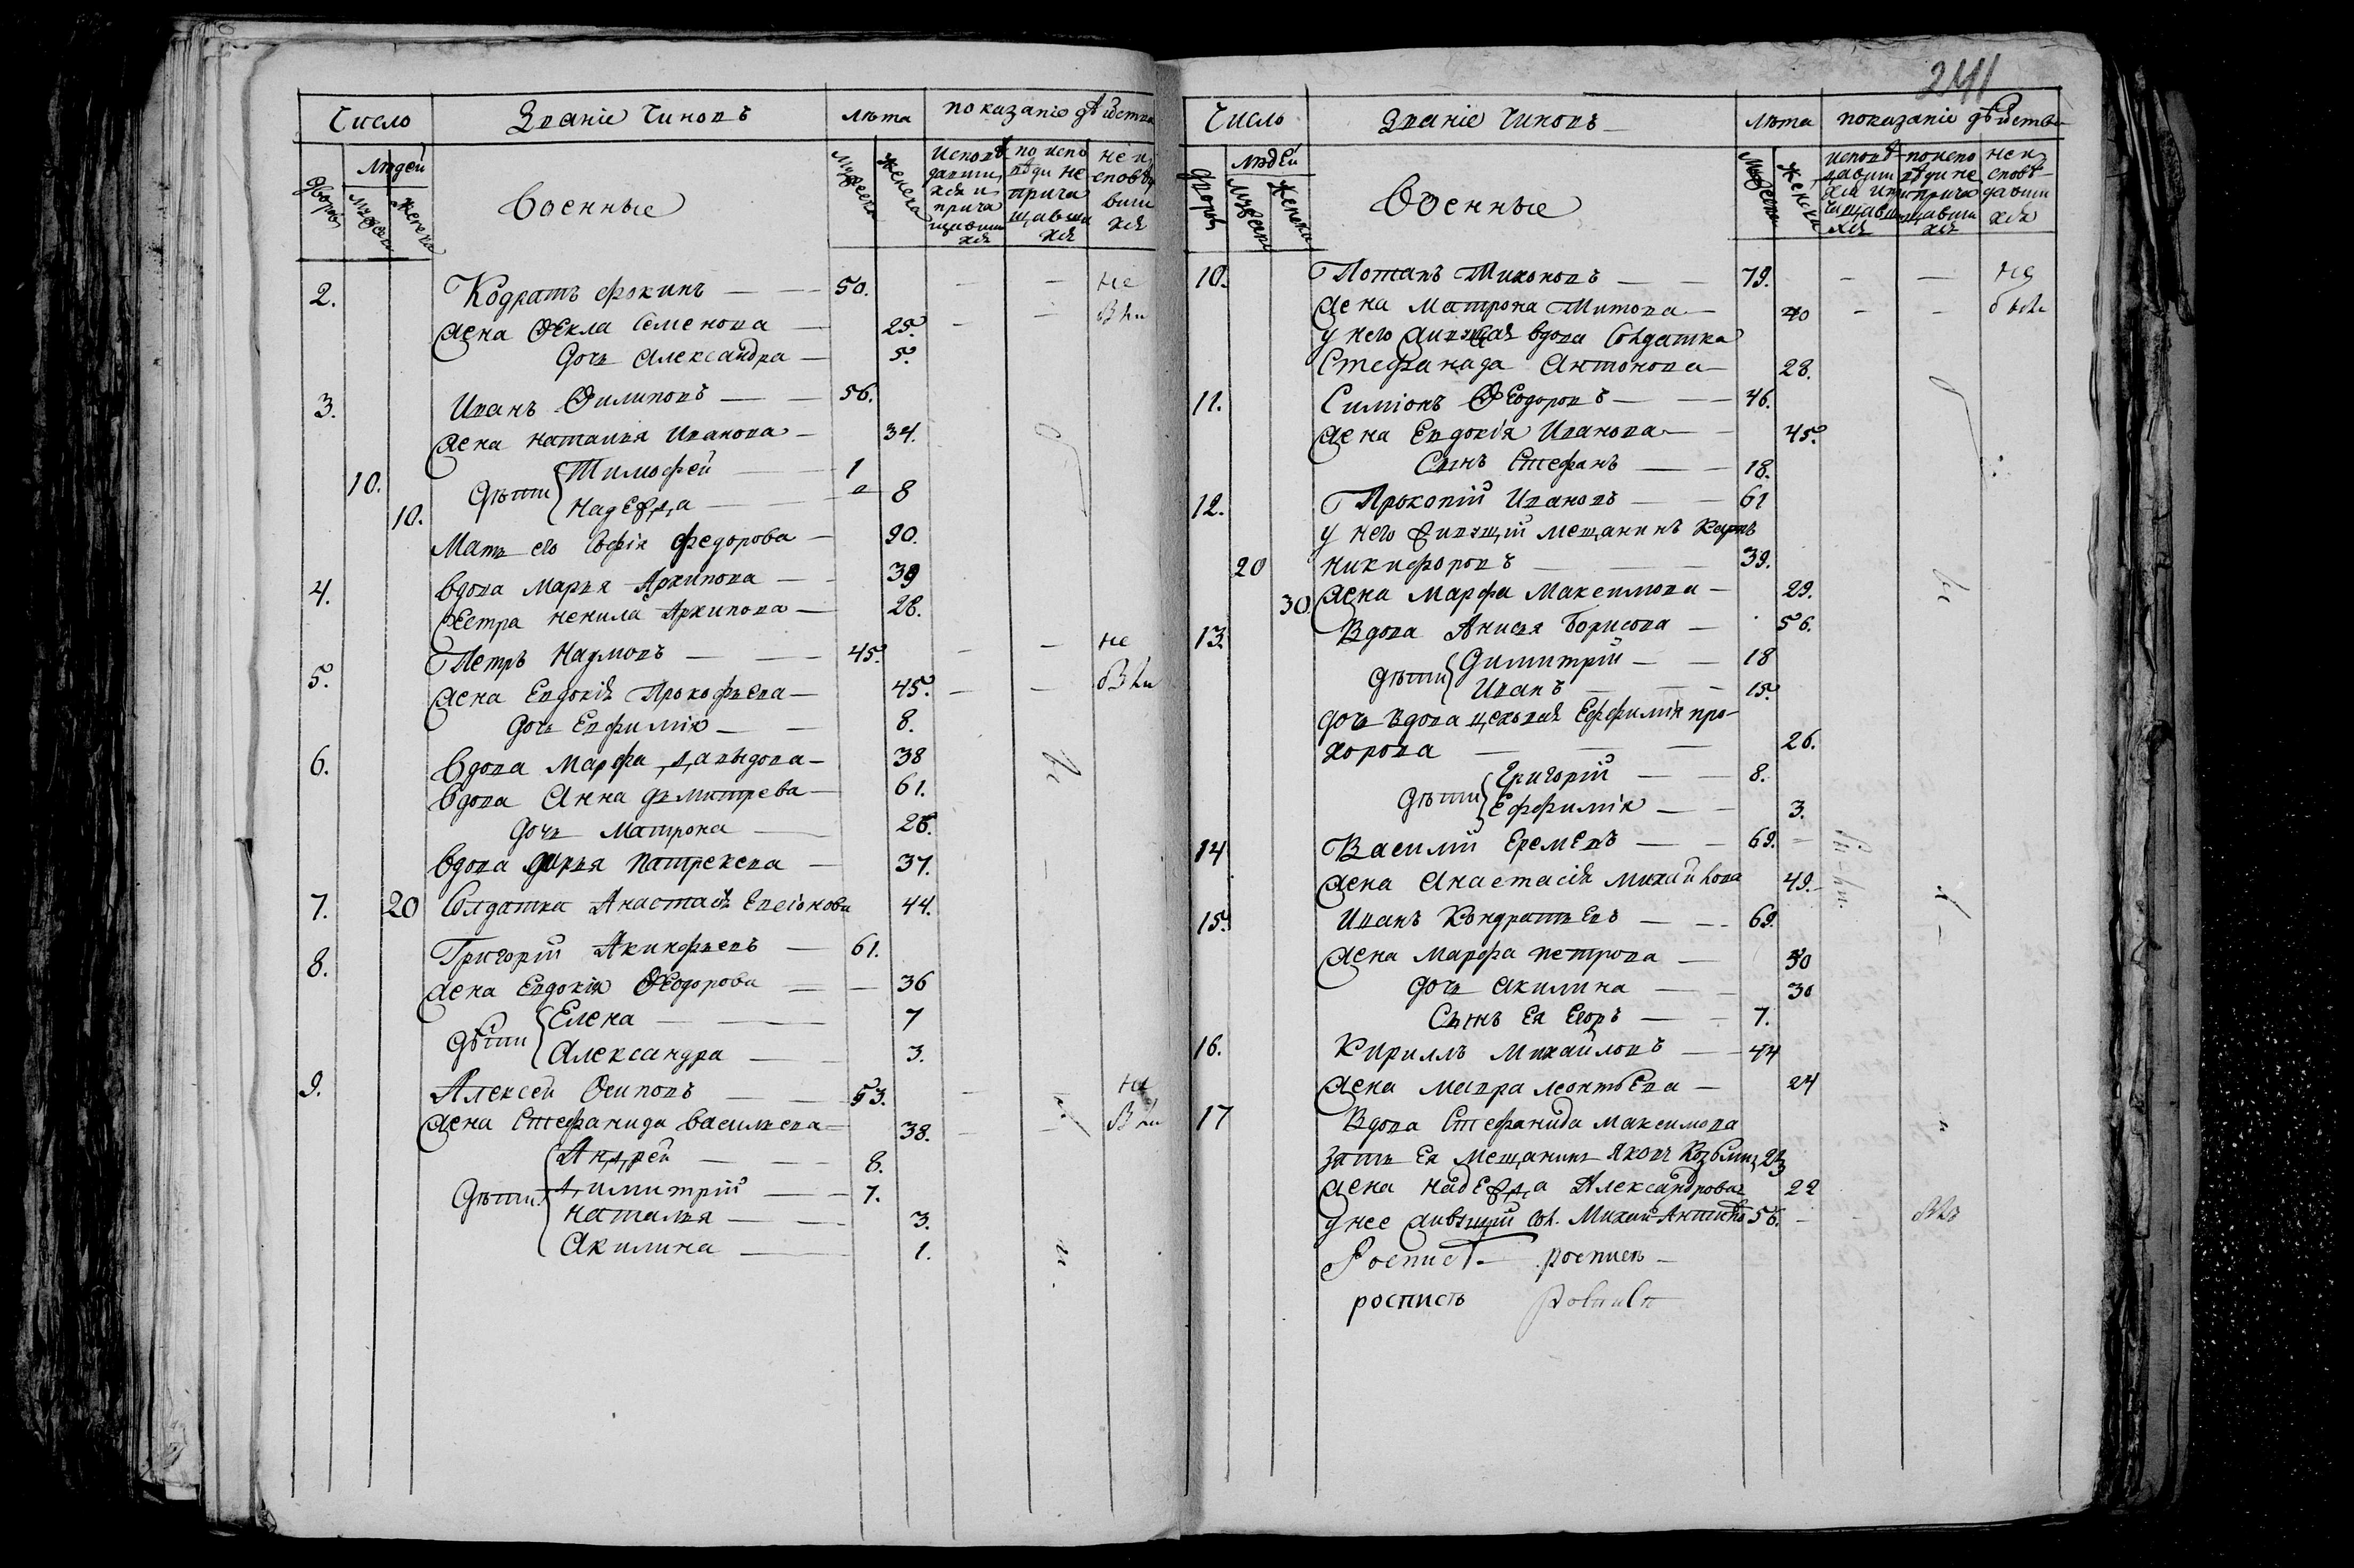 Число Званіе Чиновъ лѣта показаніе дѣйства
Дворовъ Людей Мужеска Женска Военные Мужеска Женска исповѣдавшихся и причащавшихся по исповѣди не причащавшихся не исповѣдавшихся
2. Кодратъ Фокинъ — — 50. — — не
Жена Ѳекла Семенова — 25. — —
Дочь Александра — 5.
3. Иванъ Филиповъ — — 56.
Жена Наталья Иванова — 34.
10. Дѣти Тимофей — 1
10. Надежда — 8
Мать его Софія Федорова — 90.
4. Вдова Марья Архипова — 39
Сестра Ненила Архипова — 28.
5. Петръ Наумовъ — — 45. — — не
Жена Евдокія Прокофьева — 45. — —
Дочь Евфимія — — 8.
6. Вдова Марфа Давыдова — 38
Вдова Анна Дьмитрева — 61.
Дочь Матрона — 26.
Вдова Дарья Патрекева — 37.
7. 20 Солдатка Анастасія 44.
8. Григорій Акинфьевъ — 61.
Жена Евдокія Ѳеодорова — — 36
Дѣти Елена — — 7
Александра — — 3.
9. Алексей Осиповъ — — 53. — не
Жена Стефанида Васильева — 38. — —
Дѣти Андрей — — 8.
Димитрій — — 7.
Наталья — — 3.
Акилина — 1.
241
Число Званіе Чиновъ — лѣта показаніе дѣйства
Дворовъ Людей Мужеска Женска Военные Мужеска Женска исповѣдавшихся и причащавшихся по исповѣди не причащавшихся не исповѣдавшихся
10. Потапъ Тихоновъ — — 79. — — не
Жена Матрона Титова — 40 — — были
У него живущая вдова Солдатка
Стефанада Антонова — 28.
11. Симіонъ Ѳеодоровъ — — 46.
Жена Евдокія Иванова — — 45.
Сынъ Стефанъ — — 18.
12. Прокопій Ивановъ — — 61
У него живущій мещанинъ Карпъ
20 Никифоровъ — — 39.
30 Жена Марфа Максимова — 29.
13. Вдова Анисья Борисова — 56.
Дѣти Димитрій — — 18
Иванъ — — 15.
Дочь вдова Еффимія Про-
хорова — — — 26.
Дѣти Григорій — — 8.
Еффимія — — 3.
14 Василій Еремевъ — — 69. —
Жена Анастасія Михайлова 49. —
15. Иванъ Кондратьевъ — — 69.
Жена Марфа Петрова — 50
Дочь Акилина — — 30
Сынъ Ея Егоръ — — 7.
16. Кириллъ Михайловъ — — 44
Жена Мавра Леонтьева — 24
17 Вдова Стефанида Максимова
Зять Ея Мещанинъ Яковъ Козьминъ 23
Жена Надежда Александрова 22
У нее живущій Сол. Михай 56. — —
Роспист — роспись —
роспись